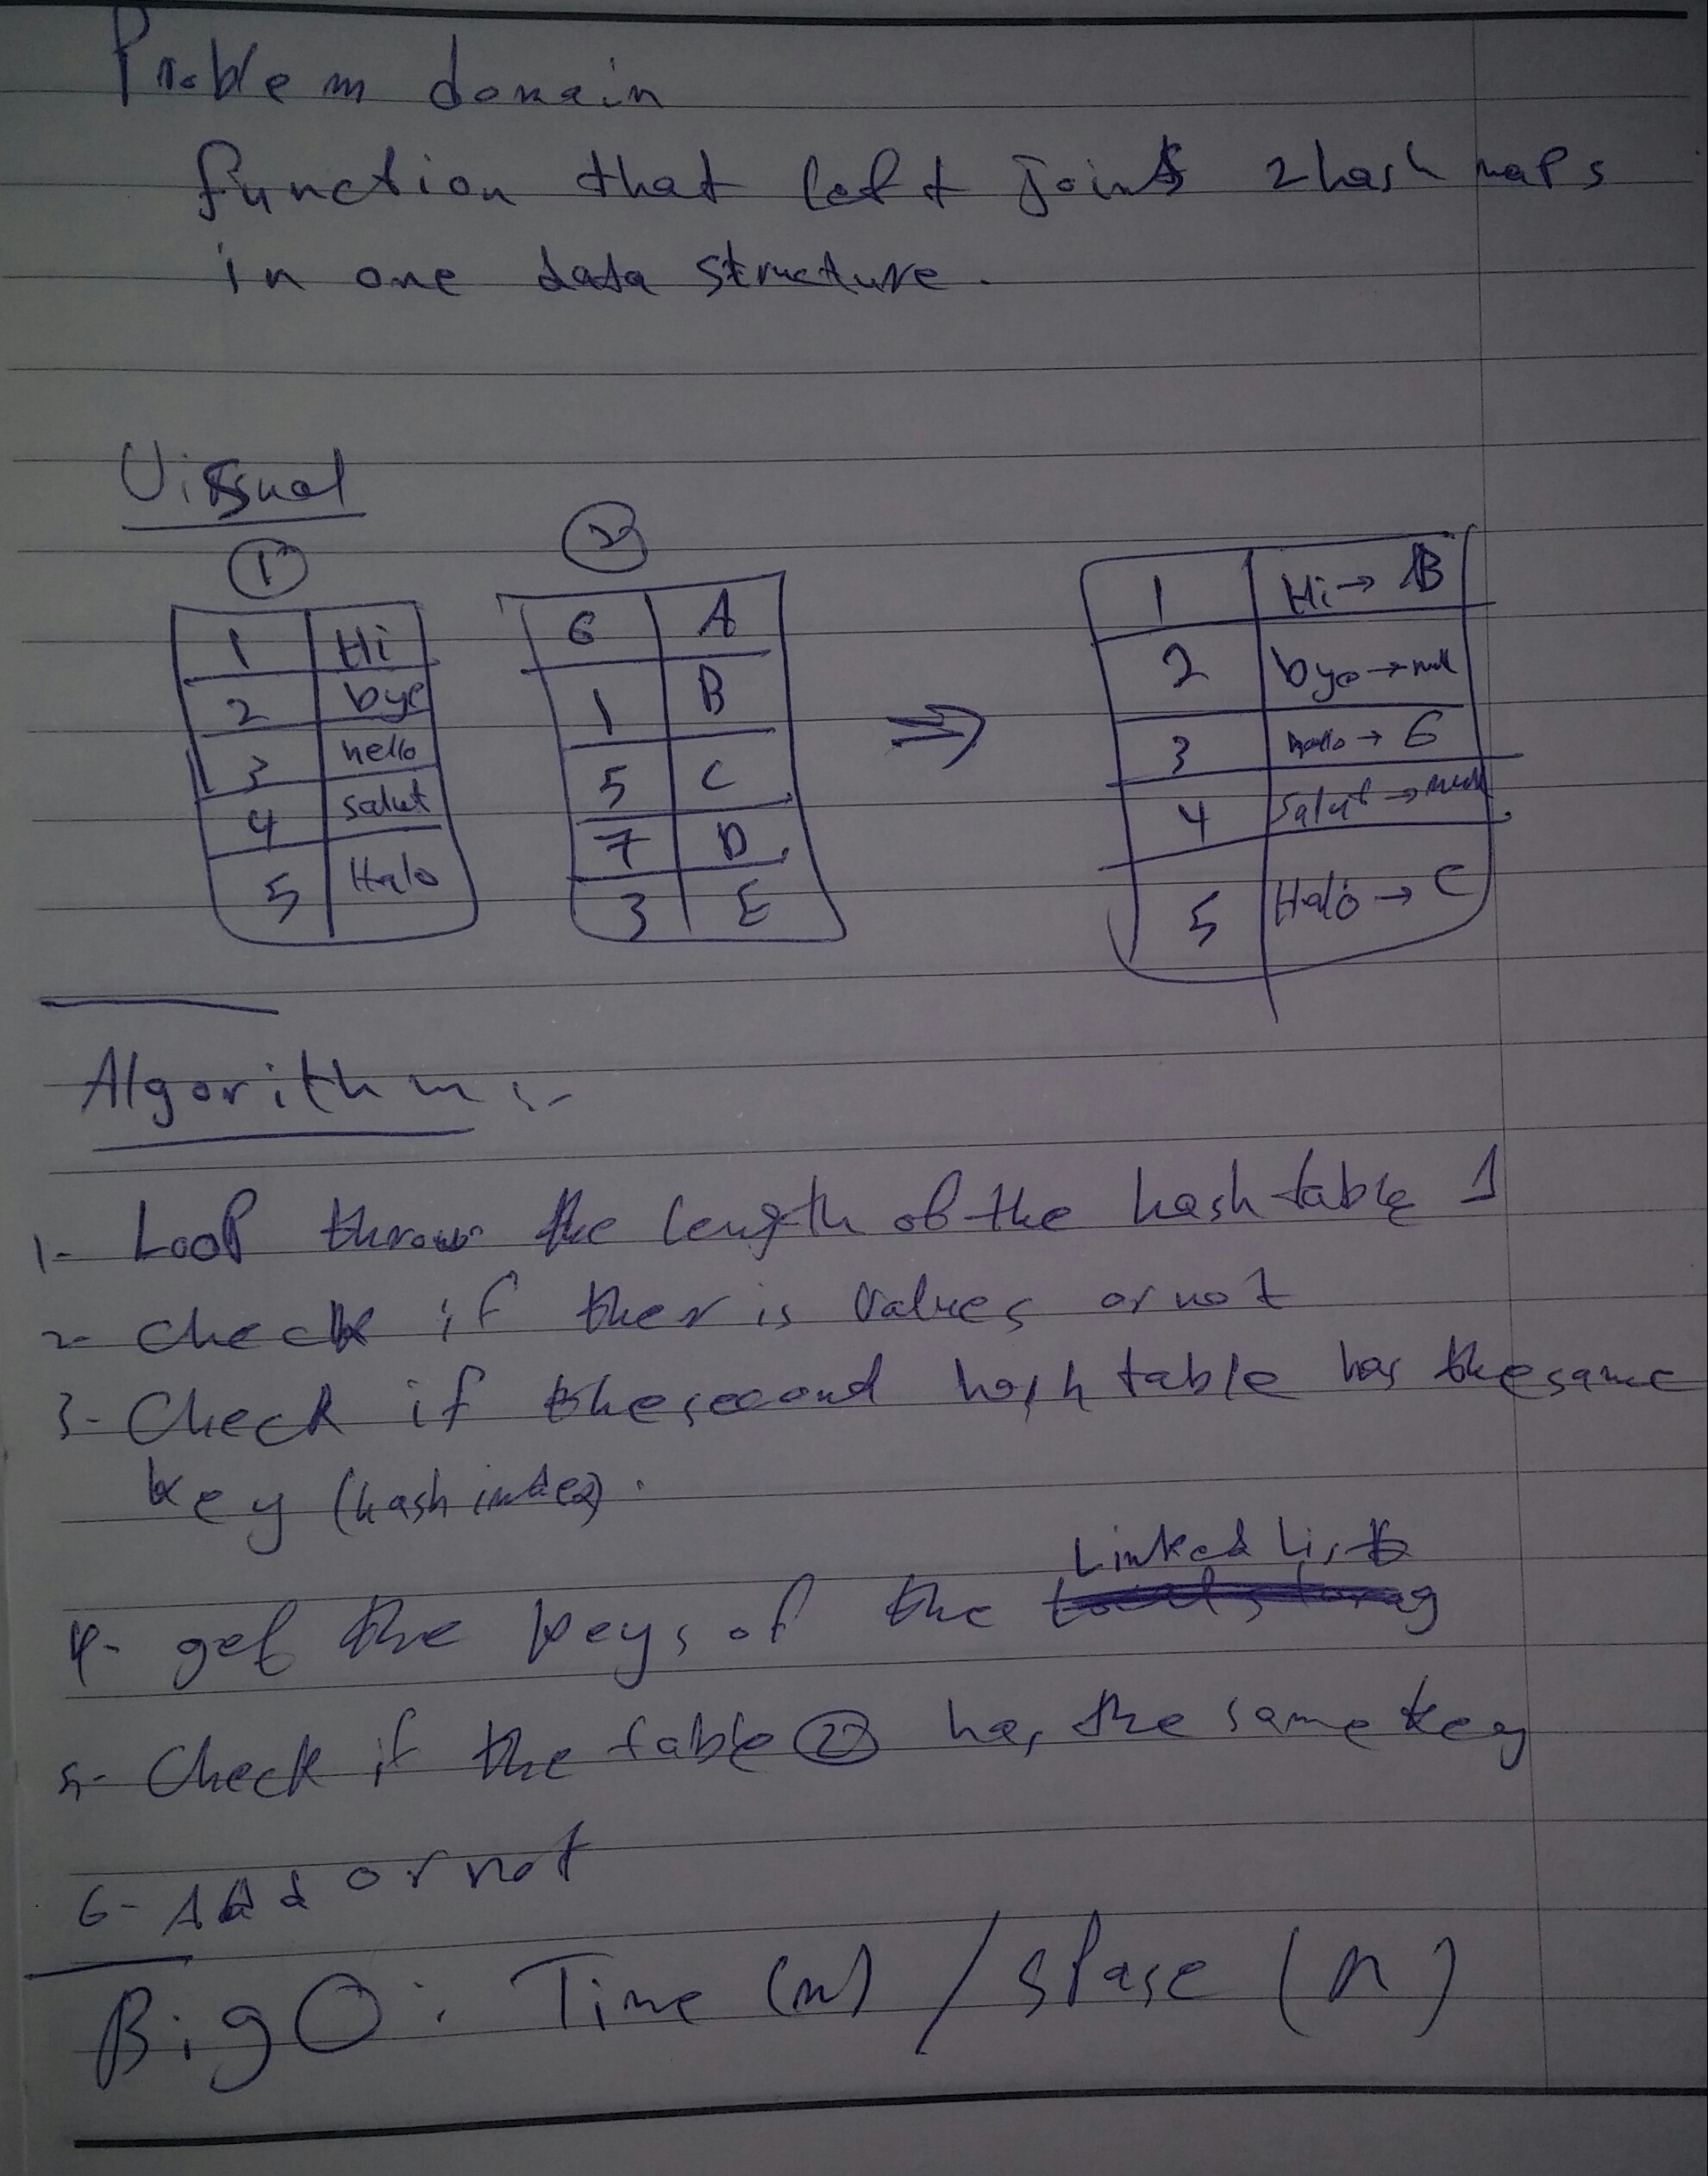 Problem domain
function that left joins 2 hash maps
in one data structure.
Visual
1 2
1 Hi
2 bye
3 hello
4 salut
5 Halo
6 A
1 B
5 C
7 D
3 E
⇒
1 Hi → B
2 bye → null
3 hello → 6
4 Salut → null
5 Halo → C
Algorithm :-
1- Loop throw the length of the hash table 1
2- check if ther is values or not
3- Check if the second hash table has the same
key (hash index).
Linked List
4- get the keys of the
5- Check if the table 2 has the same key
6- Add or not
Big O: Time (n) / Spase (n)